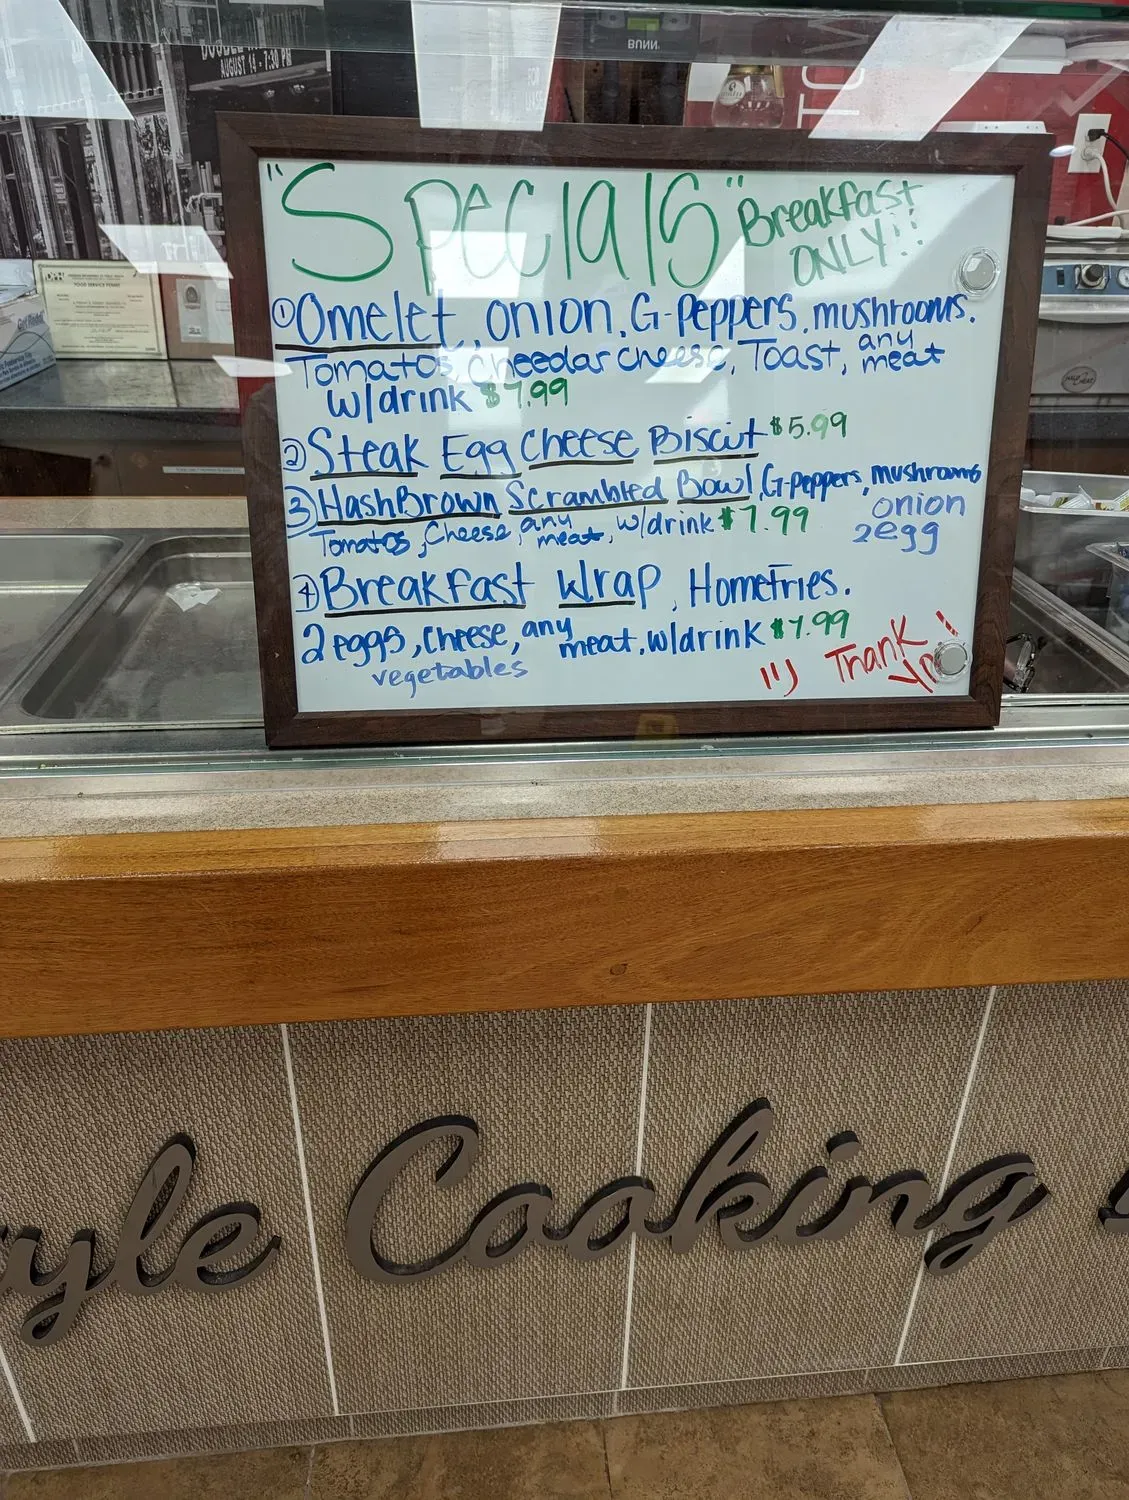 AUGUST 14 - 7:30 PM
BUNN
"Specials" Breakfast
ONLY!!
① Omelet, onion, G-Peppers, mushrooms.
Tomatos, cheedar cheese, Toast, any meat
w/drink $7.99
② Steak Egg Cheese Biscut $5.99
③ HashBrown Scrambled Bowl, G-peppers, mushrooms
Tomatos, Cheese, any meat, w/drink $7.99 onion
2egg
④ Breakfast Wrap, HomeFries.
2 eggs, cheese, any meat, w/drink $7.99
vegetables
Thank
You!
yle Cooking